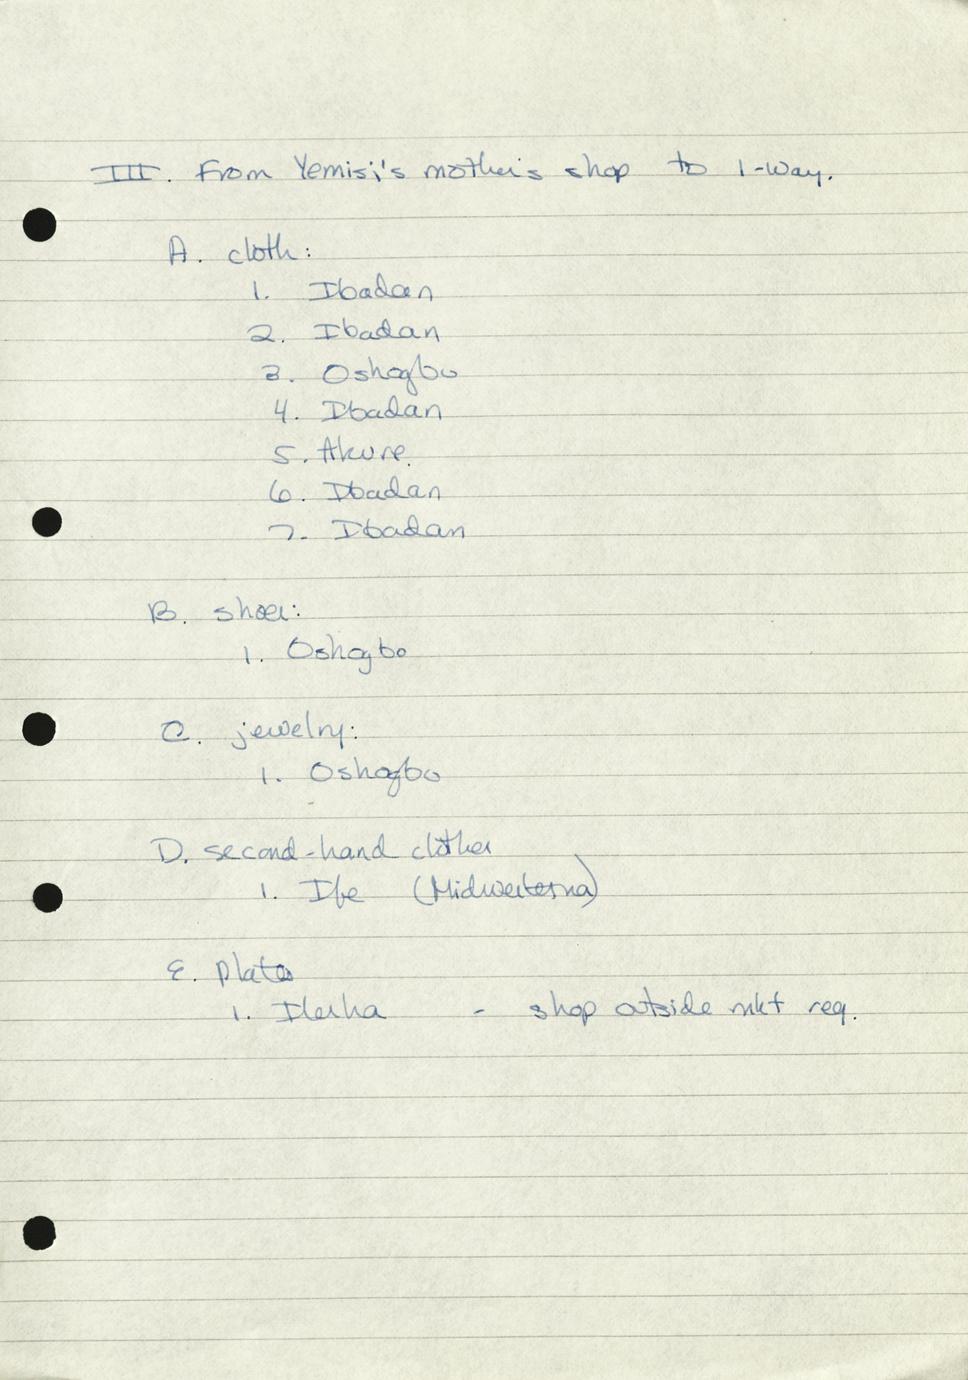 III. From Yemisi's mother's shop to 1-way.
A. cloth:
1. Ibadan
2. Ibadan
3. Oshogbo
4. Ibadan
5. Akure
6. Ibadan
7. Ibadan
B. shoes:
1. Oshogbo
C. jewelry:
1. Oshogbo
D. second-hand clothes
1. Ife (Midwesterna)
E. plates
1. Ilesha - shop outside mkt req.